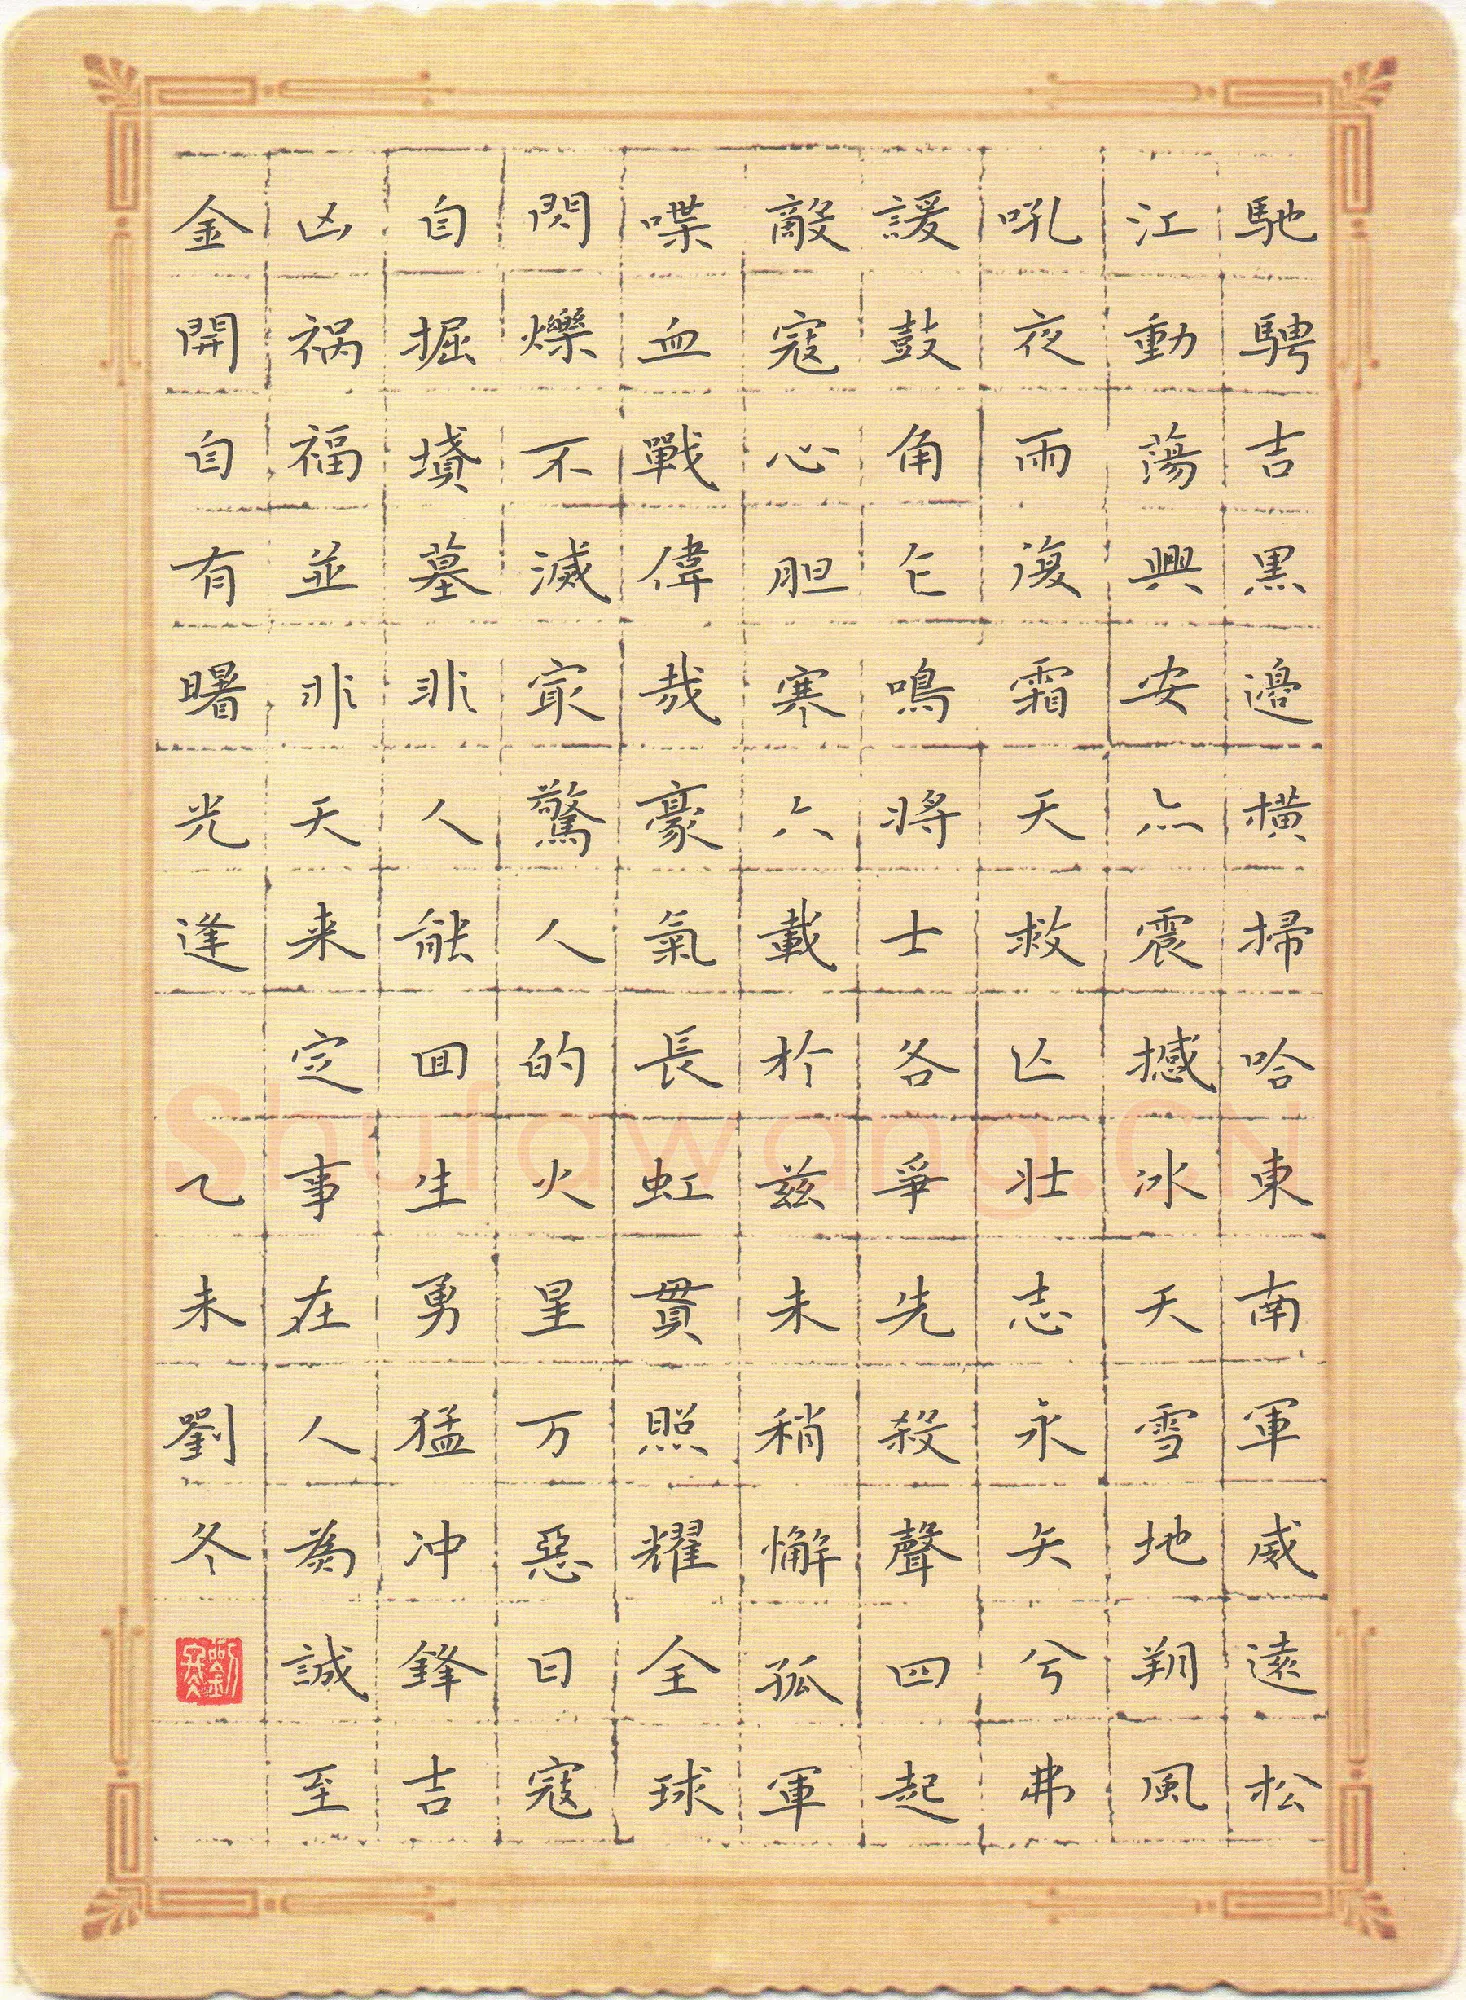 馳騁吉黑邊橫掃哈東南軍威遠松
江動蕩興安亦震撼冰天雪地翔風
吼夜雨復霜天救亡壯志永矢兮弗
諼鼓角乍鳴將士各爭先殺聲四起
敵寇心胆寒六載於兹未稍懈孤軍
喋血戰偉哉豪氣長虹貫照耀全球
閃爍不滅最驚人的火星万惡日寇
自掘墳墓非人能回生勇猛冲鋒吉
凶祸福並非天来定事在人為誠至
金開自有曙光逢 乙未劉冬
劉冬
Shufawang.CN